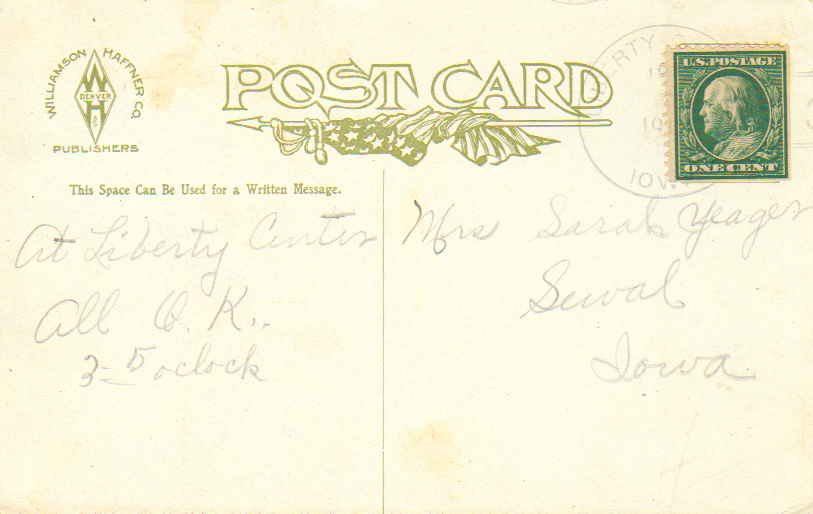 WILLIAMSON HAFFNER CO.
W
DENVER
H
PUBLISHERS
POST CARD
U.S. POSTAGE
ONE CENT
ERTY
IOW
This Space Can Be Used for a Written Message.
At Liberty Center
All O. K..
3-5 oclock
Mrs Sarah Yeager
Sewal
Iowa